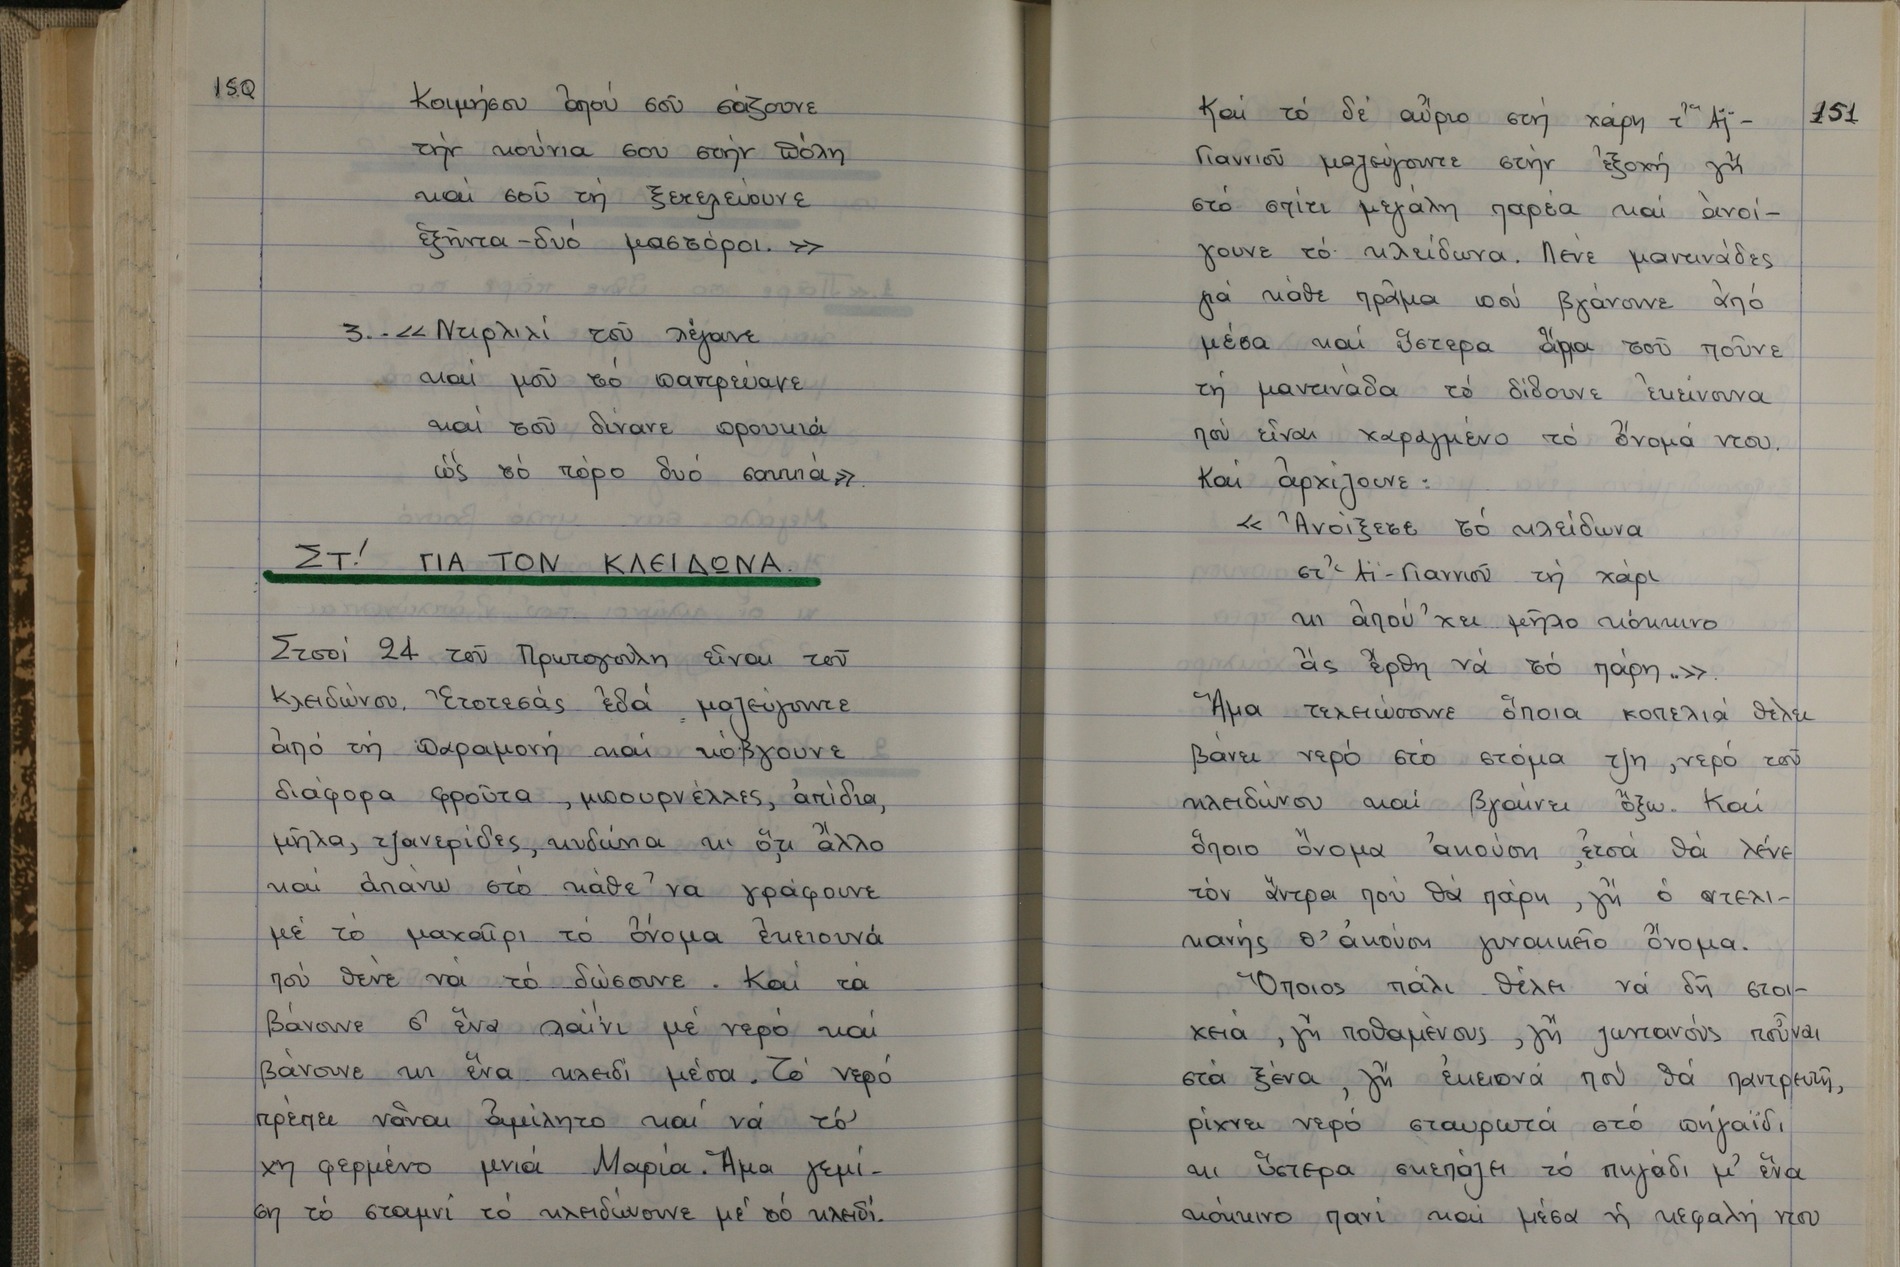 150
Κοιμήσου ἀπού σοῦ σάζουνε
τήν κούνια σου στήν Πόλη
καί σοῦ τή ξετελεύουνε
ἑξῆντα-δυό μαστόροι.»
3.-«Ντιρλιλί τοῦ λέγανε
καί μοῦ τό παντρεύανε
καί τοῦ δίνανε προυκιά
ὡς τό τόρο δυό σακκιά».
ΣΤ! ΓΙΑ ΤΟΝ ΚΛΕΙΔΩΝΑ.
Στσοί 24 τοῦ Πρωτογούλη εἶναι τοῦ
Κλειδώνου. Ἐτοτεσάς ἐδά μαζεύγουντε
ἀπό τή παραμονή καί κόβγουνε
διάφορα φροῦτα, μπουρνέλλες, ἀπίδια,
μῆλα, τζανερίδες, κυδώνια κι ὅ,τι ἄλλο
καί ἀπάνω στό κάθε'να γράφουνε
μέ τό μαχαῖρι τό ὄνομα ἐκειουνά
πού θένε νά τό δώσουνε. Καί τά
βάνουνε σ' ἕνα λαΐνι μέ νερό καί
βάνουνε κι ἕνα κλειδί μέσα. Τό νερό
πρέπει νἆναι ἀμίλητο καί νά τό
χη φερμένο μνιά Μαρία. Ἅμα γεμί-
ση τό σταμνί τό κλειδώνουνε μέ τό κλειδί.
151
Καί τό δέ αὔριο στή χάρη τ' Ἁϊ-
Γιαννιοῦ μαζεύγουντε στήν ἐξοχή γἤ
στό σπίτι μεγάλη παρέα καί ἀνοί-
γουνε τό κλείδωνα. Λένε μαντινάδες
γιά κάθε πρᾶμα πού βγάνουνε ἀπό
μέσα καί ὕστερα ἅμα τοῦ ποῦνε
τή μαντινάδα τό δίδουνε ἐκείνουνα
πού εἶναι χαραγμένο τό ὄνομά ντου.
Καί ἀρχίζουνε:
« Ἀνοίξετε τό κλείδωνα
στ' Ἁϊ-Γιαννιοῦ τή χάρι
κι ἀπού'χει μῆλο κόκκινο
ἄς ἔρθη νά τό πάρη..».
Ἅμα τελειώσουνε ὅποια κοπελιά θέλει
βάνει νερό στό στόμα τζη, νερό τοῦ
κλειδώνου καί βγαίνει ὄξω. Καί
ὅποιο ὄνομα ἀκούση ἐτσά θά λένε
τόν ἄντρα πού θά πάρη, γἤ ὁ ντελι-
κανής θ' ἀκούση γυναικεῖο ὄνομα.
Ὅποιος πάλι θέλει νά δῆ στοι-
χειά, γἤ ποθαμένους, γἤ ζωντανούς ποὖναι
στά ξένα, γἤ ἐκειονά πού θά παντρευτῆ,
ρίχνει νερό σταυρωτά στό πηγαΐδι
κι ὕστερα σκεπάζει τό πηγάδι μ' ἕνα
κόκκινο πανί καί μέσα ἡ κεφαλή ντου